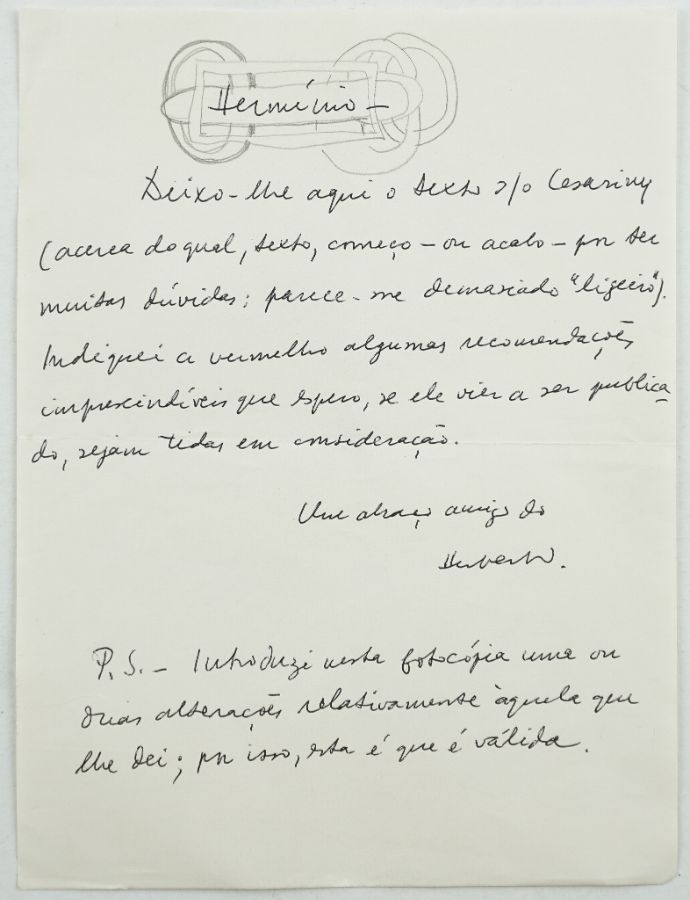 Hermínio –
Deixo-lhe aqui o texto s/o Cesariny
(acerca do qual, texto, começo – ou acabo – por ter
muitas dúvidas: parece-me demasiado "ligeiro").
Indiquei a vermelho algumas recomendações
imprescindíveis que espero, se ele vier a ser publica
do, sejam tidas em consideração.
Um abraço amigo do
Herberto.
P.S. – Introduzi nesta fotocópia uma ou
duas alterações relativamente àquela que
lhe dei; por isso, esta é que é válida.